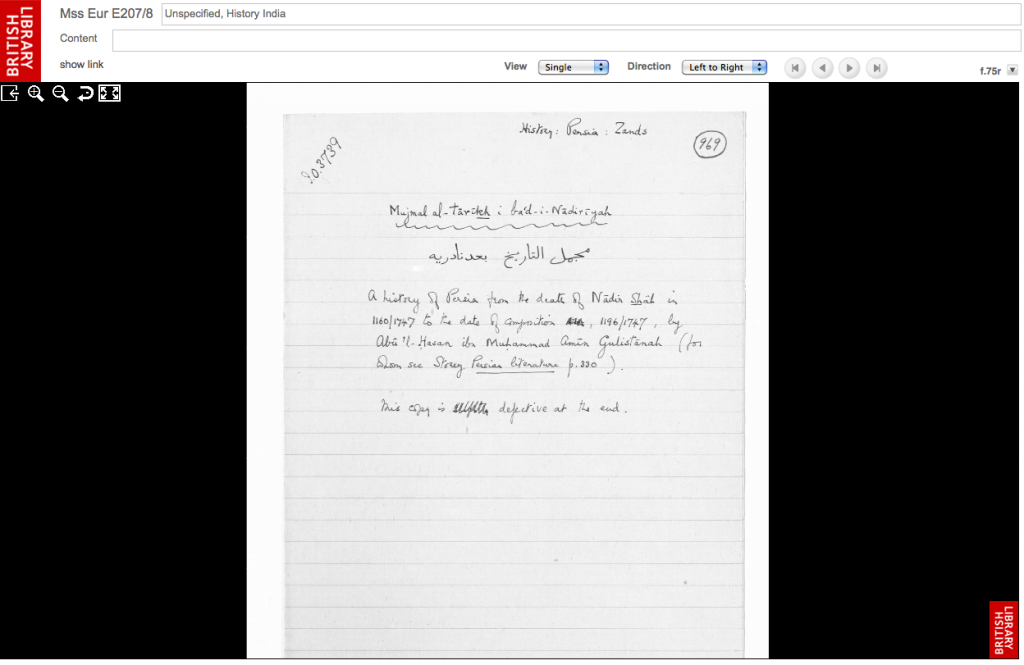 BRITISH LIBRARY
Mss Eur E207/8
Unspecified, History India
Content
show link
View
Single
Direction
Left to Right
f.75r
I.O. 3739
History: Persia: Zands
969
Mujmal al-Tārīkh i ba'd-i-Nādirīyah
مجمل التاريخ بعد نادريه
A history of Persia from the death of Nādir Shāh in
1160/1747 to the date of composition , 1196/1747, by
Abū 'l-Hasan ibn Muḥammad Amīn Gulistānah (for
whom see Storey Persian literature p.330).
This copy is defective at the end.
BRITISH LIBRARY